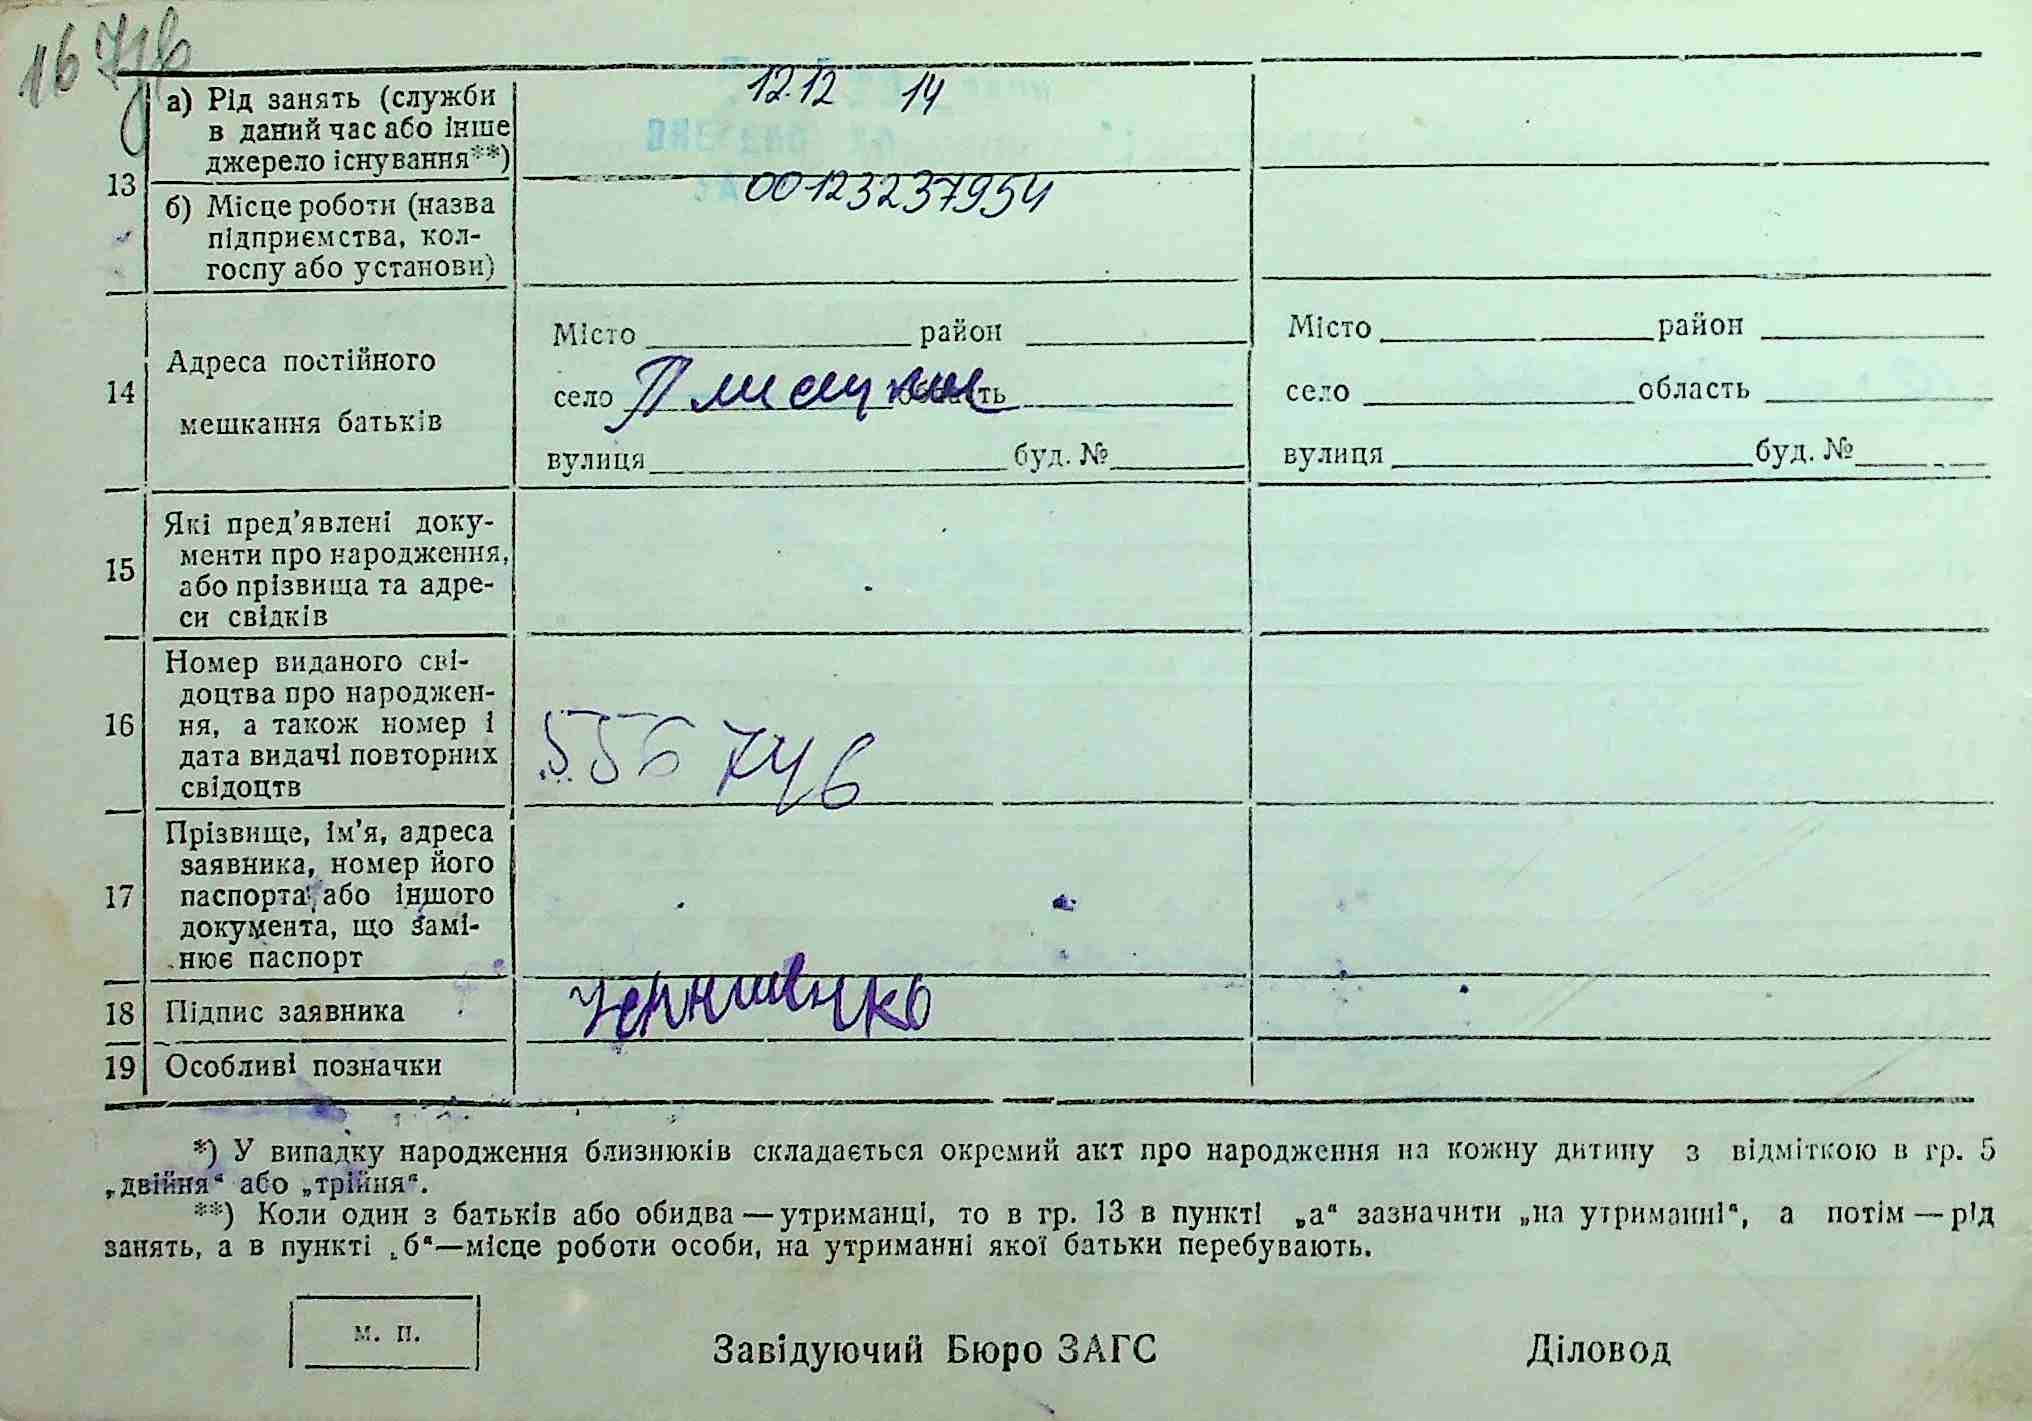 12.12 14
а) Рід занять (служби
в даний час або інше
джерело існування**)
13
00123237954
б) Місце роботи (назва
підприємства, кол-
госпу або установи)
14
Адреса постійного
мешкання батьків
Місто район
село область
вулиця буд. №
Місто район
село область
вулиця буд. №
15
Які пред’явлені доку-
менти про народження,
або прізвища та адре-
си свідків
16
Номер виданого сві-
доцтва про народжен-
ня, а також номер і
дата видачі повторних
свідоцтв
17
Прізвище, ім’я, адреса
заявника, номер його
паспорта або іншого
документа, що замі-
нює паспорт
18 Підпис заявника
19 Особливі позначки
*) У випадку народження близнюків складається окремий акт про народження на кожну дитину з відміткою в гр. 5
„двійня“ або „трійня“.
**) Коли один з батьків або обидва — утриманці, то в гр. 13 в пункті „а“ зазначити „на утриманні“, а потім — рід
занять, а в пункті „б“—місце роботи особи, на утриманні якої батьки перебувають.
м. п.
Завідуючий Бюро ЗАГС Діловод